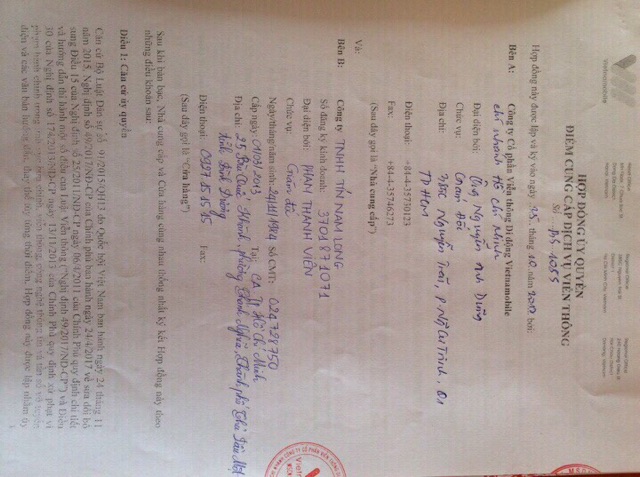 Vietnamobile
HỢP ĐỒNG ỦY QUYỀN
ĐIỂM CUNG CẤP DỊCH VỤ VIỄN THÔNG
Số: BS 1055
Hợp đồng này được lập và ký vào ngày 25 tháng 10 năm 2017 bởi:
Bên A: Công ty Cổ phần Viễn thông Di động Vietnamobile
chi nhánh Hồ Chí Minh
Đại diện bởi: Ông Nguyễn Anh Dũng
Chức vụ: Giám Đốc
Địa chỉ: Nguyễn Trãi, P Nguyễn Cư Trinh, Q1
TP HCM
Điện thoại: +84-4-35730123
Fax: +84-4-35746273
(Sau đây gọi là "Nhà cung cấp")
Và:
Bên B: Công ty TNHH TÍN NAM LONG
Số đăng ký kinh doanh: 3701871071
Đại diện bởi: PHAN THANH VIÊN
Chức vụ: Giám đốc
Ngày/tháng/năm sinh: 24/11/1984 Số CMT: 024728750
Cấp ngày: 09/05/2013 Tại: CA TP Hồ Chí Minh
Địa chỉ: 25 Bùi Quốc Khánh, phường Chánh Nghĩa, Thành phố Thủ Dầu Một
tỉnh Bình Dương
Điện thoại: 0937.15.15.15 Fax:
(Sau đây gọi là "Cửa hàng")
Sau khi bàn bạc, Nhà cung cấp và Cửa hàng cùng nhau thống nhất ký kết Hợp đồng này theo
những điều khoản sau:
Điều 1: Căn cứ ủy quyền
Căn cứ Bộ Luật Dân sự số 91/2015/QH13 do Quốc hội Việt Nam ban hành ngày 24 tháng 11
năm 2015, Nghị định số 49/2017/NĐ-CP của Chính phủ ban hành ngày 24/4/2017 về sửa đổi bổ
sung Điều 15 của Nghị định số 25/2011/NĐ-CP ngày 06/4/2011 của Chính phủ quy định chi tiết
và hướng dẫn thi hành một số điều của Luật Viễn thông ("Nghị định 49/2017/NĐ-CP") và Điều
30 của Nghị định số 174/2013/NĐ-CP ngày 13/11/2013 của Chính Phủ quy định xử phạt vi
phạm hành chính trong lĩnh vực bưu chính, viễn thông, công nghệ thông tin và tần số vô tuyến
điện và các văn bản hướng dẫn, thay thế tùy từng thời điểm. Hợp đồng này được lập nhằm ủy